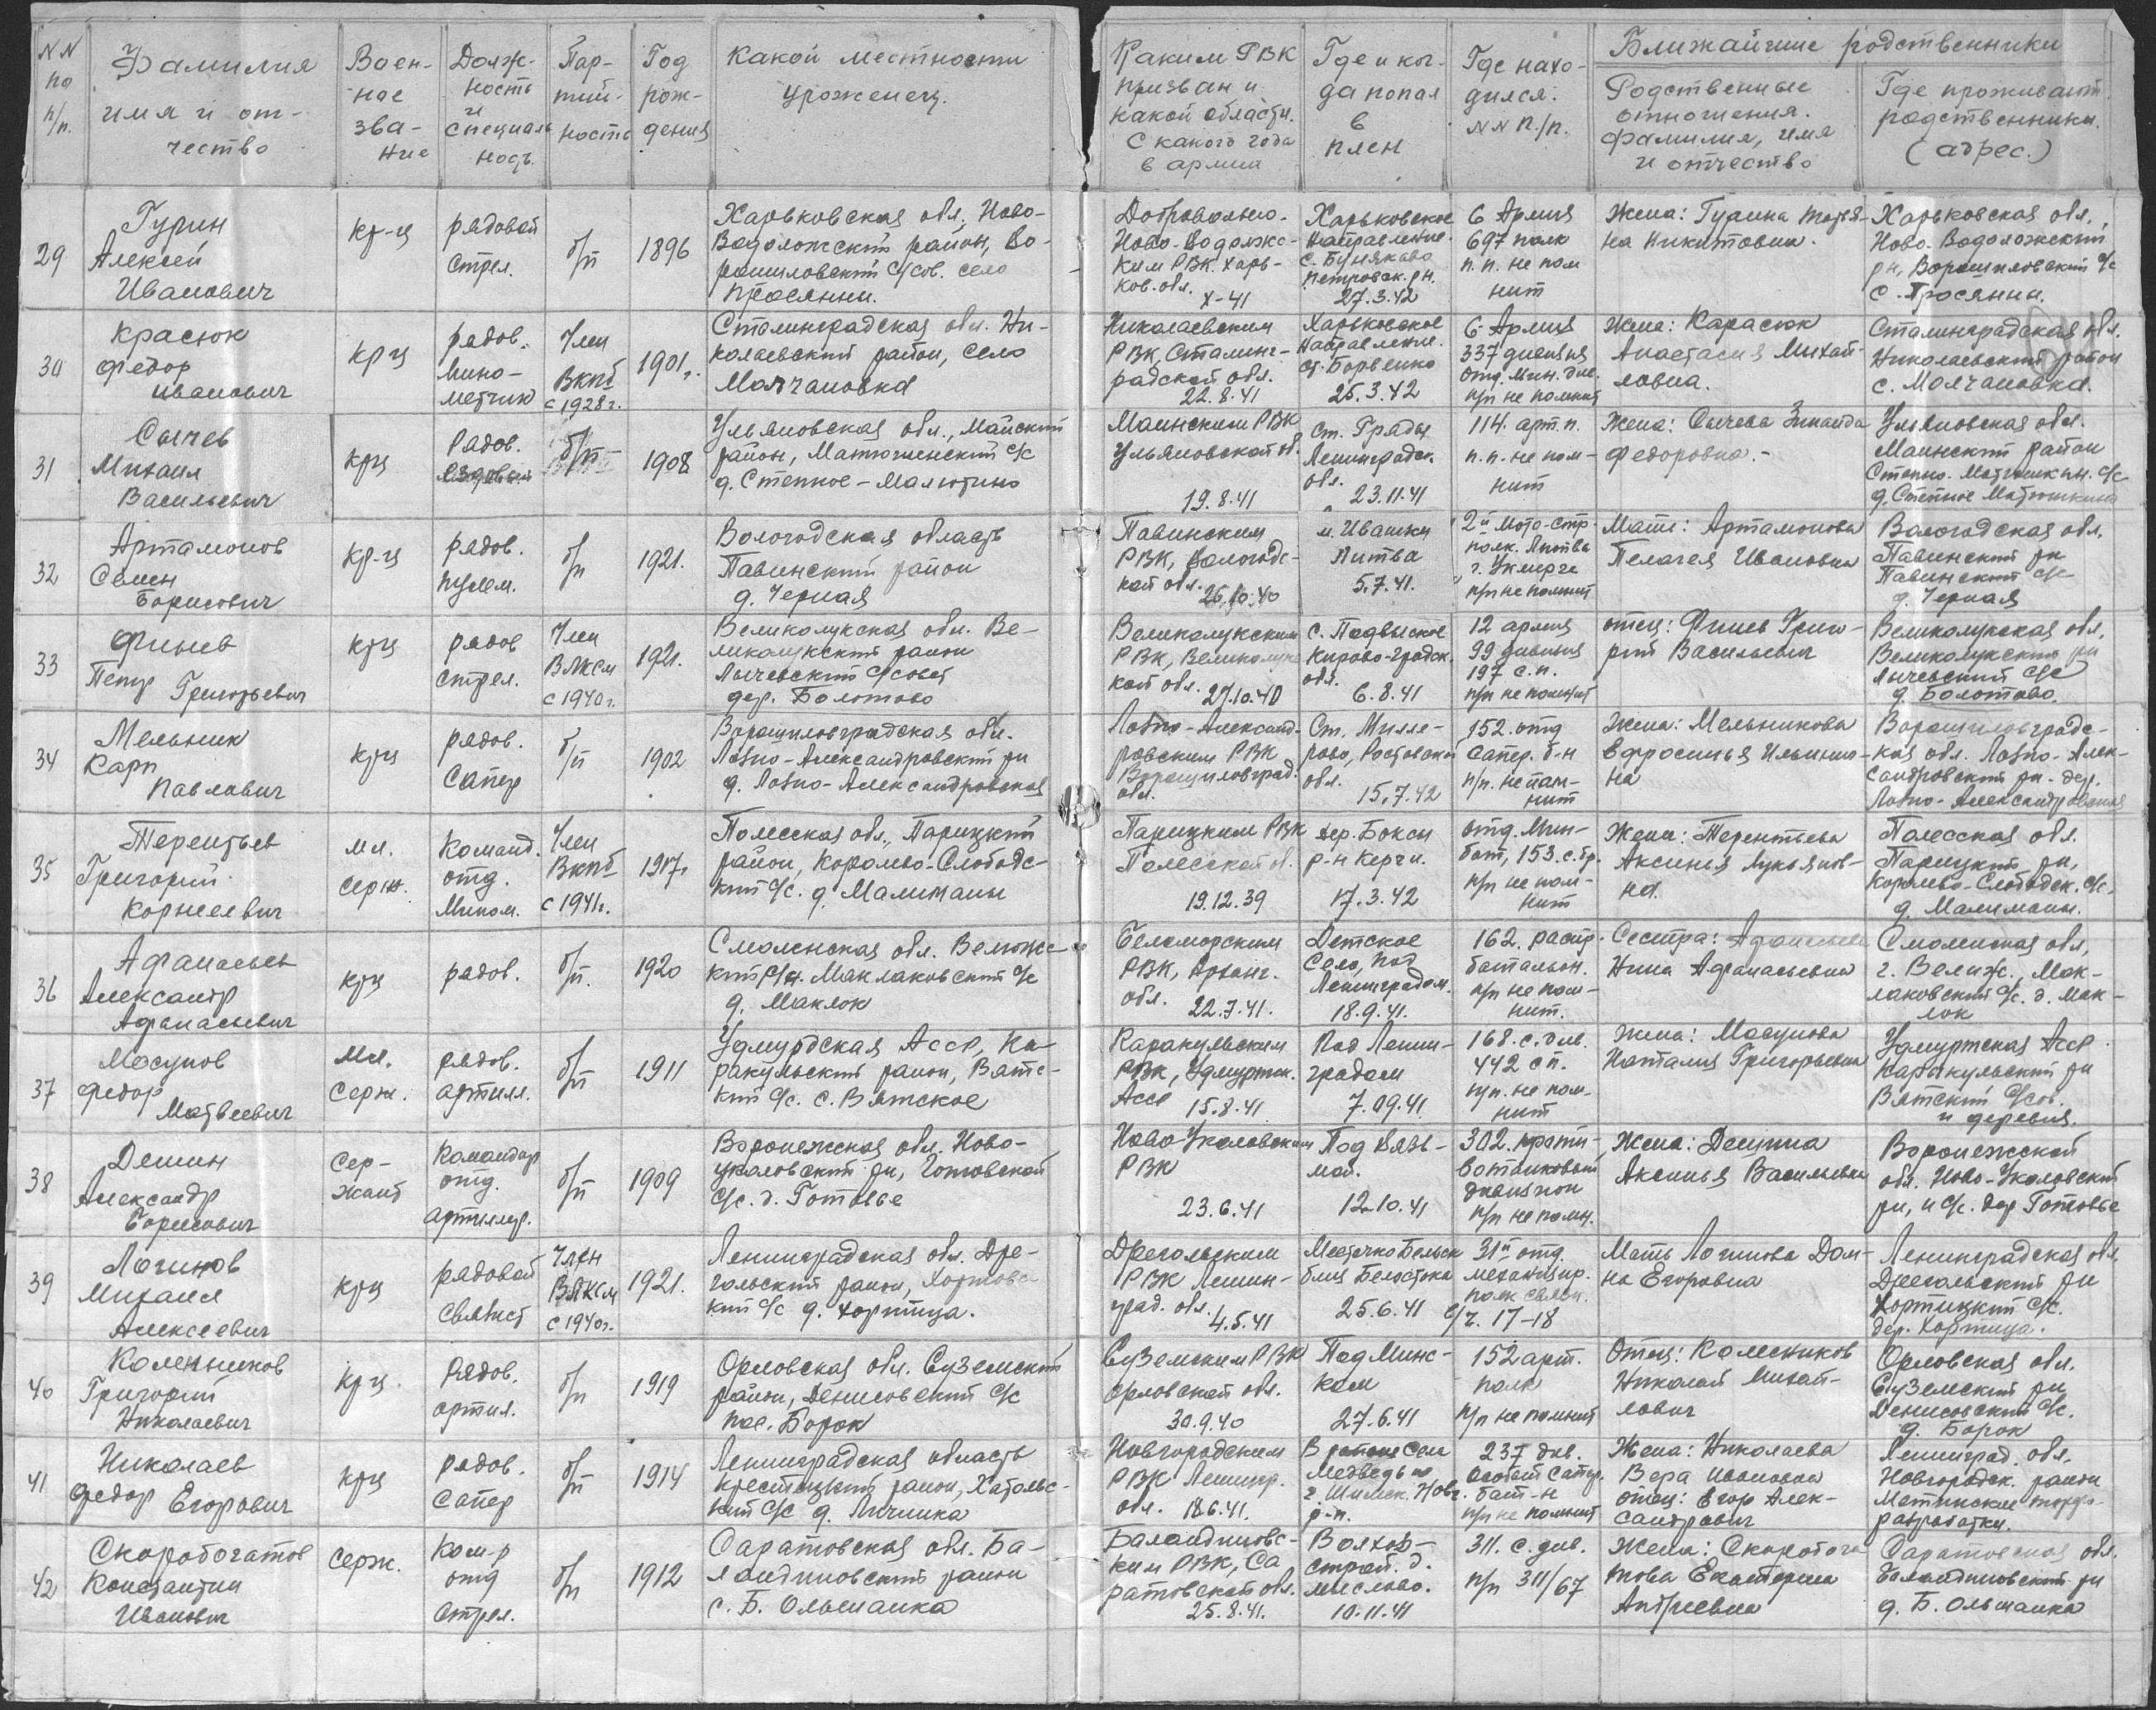 NN по п/п.
Фамилия имя и отчество
Воен-ное зва-ние
Долж-ность и специаль ность.
Пар-тий-ность
Год рож-дения
Какой местности уроженец.
Каким РВК призван и какой области. С какого года в армии
Где и ког-да попал в плен
Где нахо-дился. NN п./п.
Ближайшие родственники
Родственные отношения. фамилия, имя и отчество
Где проживают родственники. (адрес.)
29
Гурин
Алексей
Иванович
кр-ц
рядовой
стрел.
б/п
1896
Харьковская обл. Ново-
Водоложский район, Во-
рошиловский с/сов. село
Просянни.
Добровольно.
Ново-Водолжс-
ким РВК. Харь-
ков. обл.
X-41
Харьковское
Направление.
Петровск. рн.
27.3.42
6 Армия
697 полк
п.п. не пом
нит
Жена: Гурина Татья-
на Никитовна.
Харьковская обл.
Ново-Водоложский
рн, Ворошиловский с/с
с. Просянни.
30
Красюк
Федор
Иванович
крц
рядов.
мино-
метчик
Член
ВКПб
с 1928г.
1901г.
Сталинградская обл. Ни-
колаевский район, село
Молчановка
Николаевским
РВК, Сталинг-
радской обл.
22.8.41
Харьковское
Направление.
ст. Борвенко
25.3.42
6 Армия
337 дивизия
отд. мин. див.
п/п не помнит
Жена: Карасюк
Анастасия Михай-
ловна.
Сталинградская обл.
Николаевский район
с. Молчановка.
31
Сычев
Михаил
Васильевич
крц
Рядов.
ездовым
б/п
1908
Ульяновская обл., Майский
район, Матюшенский с/с
д. Степное-Малютино
Маинским РВК
Ульяновской об.
19.8.41
ст. Грады
Ленинградск.
обл.
23.11.41
114. арт. п.
п.п. не пом-
нит
Жена: Сычева Зинаида
Федоровна.-
Ульяновская обл.
Маинский район
Степно. Матюшкин. с/с
д. Степное Матюшкино
32
Артамонов
Семен
Борисович
кр-ц
рядов.
пулем.
б/п
1921.
Вологодская область
Павинский район
д. Черная
Павинским
РВК, Вологодс-
кой обл.
26.10.40
м. Ивашки
Литва
5.7.41.
2й мото-стр.
полк. Литва
г. Укмерге
п/п не помнит
Мать: Артамонова
Пелагея Ивановна
Вологодская обл.
Павинский рн
Павинский с/с
д. Черная
33
Финев
Петр Григорьевич
крц
рядов
стрел.
Член
ВЛКСМ
с 1940г.
1921.
Великолукская обл. Ве-
ликолукский район
Лычевский с/совет
дер. Болотово
Великолукским
РВК, Великолукс
кой обл.
27.10.40
с. Подвыское
Кирово-градск.
обл.
6.8.41
12 армия
99 дивизия
197 с.п.
п/п не помнит
отец: Финев Григо-
рий Васильевич
Великолукская обл.
Великолукский рн
Лычевский с/с
д. Болотово.
34
Мельник
Карп
Павлович
крц
рядов.
Сапер
б/п
1902
Ворошиловградская обл.
Лозно-Александровский рн
д. Лозно-Александровская
Лозно-Александ-
ровским РВК
Ворошиловград.
обл.
Ст. Милле-
рово, Ростовской
обл.
15.7.42
152. отд
сапер. б-н
п/п. не пом-
нит
Жена: Мельникова
Ефросинья Ильинич-
на
Ворошиловградс-
кая обл. Лозно-Алек-
сандровский рн. дер.
Лозно-Александровская
35
Терентьев
Григорий
Корнеевич
мл.
серж.
Команд.
отд.
Мином.
Член
ВКПб
с 1941г.
1917г
Полесская обл., Парицкий
район, Королево-Слободс-
кий с/с. д. Малиманы
Парицким РВК
Полесской об.
19.12.39
дер. Бокси
р-н Керчи.
17.3.42
отд. мин-
бат, 153. с.бр.
п/п не пом-
нит
Жена: Терентьева
Аксинья Лукьянов-
на.
Полесская обл.
Парицкий рн,
Королево-Слободск. с/с.
д. Малиманы.
36
Афанасьев
Александр
Афанасьевич
крц
рядов.
б/п.
1920
Смоленская обл. Велижс-
кий р/н. Маклаковский с/с
д. Маклок
Беломорским
РВК, Арханг.
обл.
22.7.41.
Детское
Село, под
Ленинградом.
18.9.41.
162. распр.
батальон.
п/п не пом-
нит.
Сестра: Афанасьева
Нина Афанасьевна
Смоленская обл,
г. Велиж., Мак-
лаковский с/с. д. Мак-
лок
37
Мосунов
Федор
Матвеевич
Мл.
Серж.
рядов.
артилл.
б/п
1911
Удмуртская Асср, Ка-
ракульский район, Вятс-
кий с/с. с. Вятское
Каракульским
РВК, Удмуртск.
Асср
15.8.41
Под Ленин-
градом
7.09.41
168. с. див.
442 сп.
п/п. не пом-
нит
Жена: Мосунова
Наталия Григорьевна
Удмуртская Асср
Каракульский рн
Вятский с/сов.
и деревня.
38
Демин
Александр
Борисович
Сер-
жант
Командир
отд.
артиллер.
б/п
1909
Воронежская обл. Ново-
уколовский рн, Готовской
с/с. д. Готовье
Ново Уколовским
РВК
23.6.41
Под Вязь-
мой.
12.10.41
302. проти-
вотанковый
дивизион
п/п не помн.
Жена: Демина
Аксинья Васильевна
Воронежской
обл. Ново-Уколовский
рн, и с/с. дер Готовье
39
Логинов
Михаил
Алексеевич
крц
рядовой
Связист
Член
ВЛКСМ
с 1940г.
1921.
Ленинградская обл. Дре-
гольский район, Хортовс-
кий с/с д. Хортица.
Дрегольским
РВК Ленин-
град. обл.
4.5.41
Местечко Бельск
близ Белостока
25.6.41
31й отд.
механизир.
полк связи.
с/ч. 17-18
Мать Логинова Дом-
на Егоровна
Ленинградская обл.
Дрегольский рн
Хортицкий с/с.
дер. Хортица.
40
Коленников
Григорий
Николаевич
крц.
Рядов.
артил.
б/п
1919
Орловская обл. Суземский
район, Денисовский с/с
пос. Борок
Суземским РВК
Орловской обл.
30.9.40
Под Минс-
ком
27.6.41
152 арт.
полк
п/п не помнит
Отец: Колесников
Николай Михай-
лович
Орловская обл.
Суземский рн
Денисовский с/с.
д. Борок
41
Николаев
Федор Егорович
крц
рядов.
сапер
б/п
1914
Ленинградская область
Крестецкий район, Хатольс-
кий с/с д. Личинка
Новгородским
РВК Ленингр.
обл. 18.6.41.
В районе села
Медведь
г. Шимск. Новг.
р-н.
237 див.
особый сапер.
бат-н
п/п не помнит
Жена: Николаева
Вера Ивановна
отец: Егор Алек-
сандрович
Ленинград. обл.
Новгородск. район
разработки.
42
Скоробогатов
Константин
Иванович
Серж.
Ком-р
отд
стрел.
б/п
1912
Саратовская обл. Ба-
ландиновский район
с. Б. Ольшанка
Баландиновс-
ким РВК, Са
ратовской обл.
25.8.41.
Волхов-
строй. д.
мыслово.
10.11.41
311. с. див.
п/п 311/67
Жена: Скоробога
това Екатерина
Андреевна
Саратовская обл.
Баландиновский рн
д. Б. Ольшанка